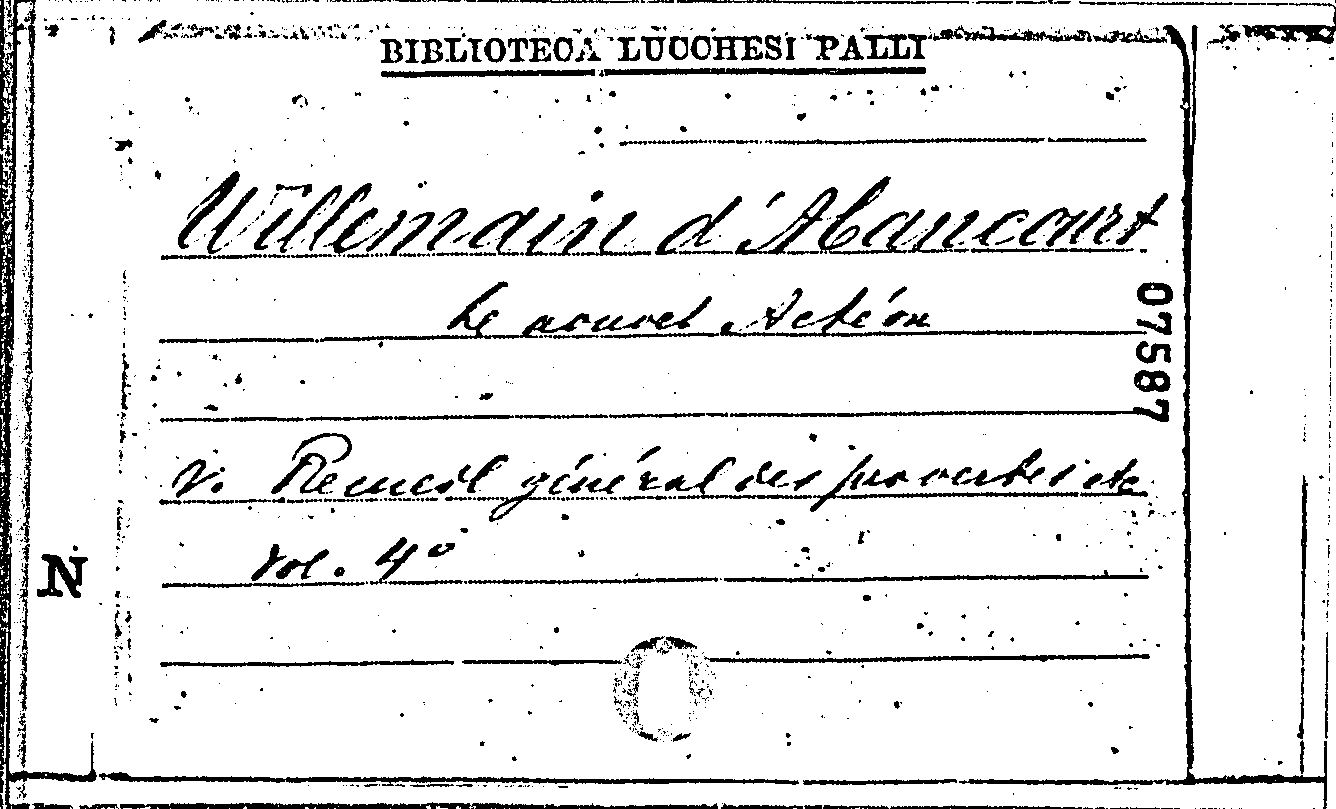 BIBLIOTECA LUCCHESI PALLI
Willemain d'Abancourt
Le nouvel Actéon
07587
V. Recueil général des proverbes etc
Vol. 4º
N